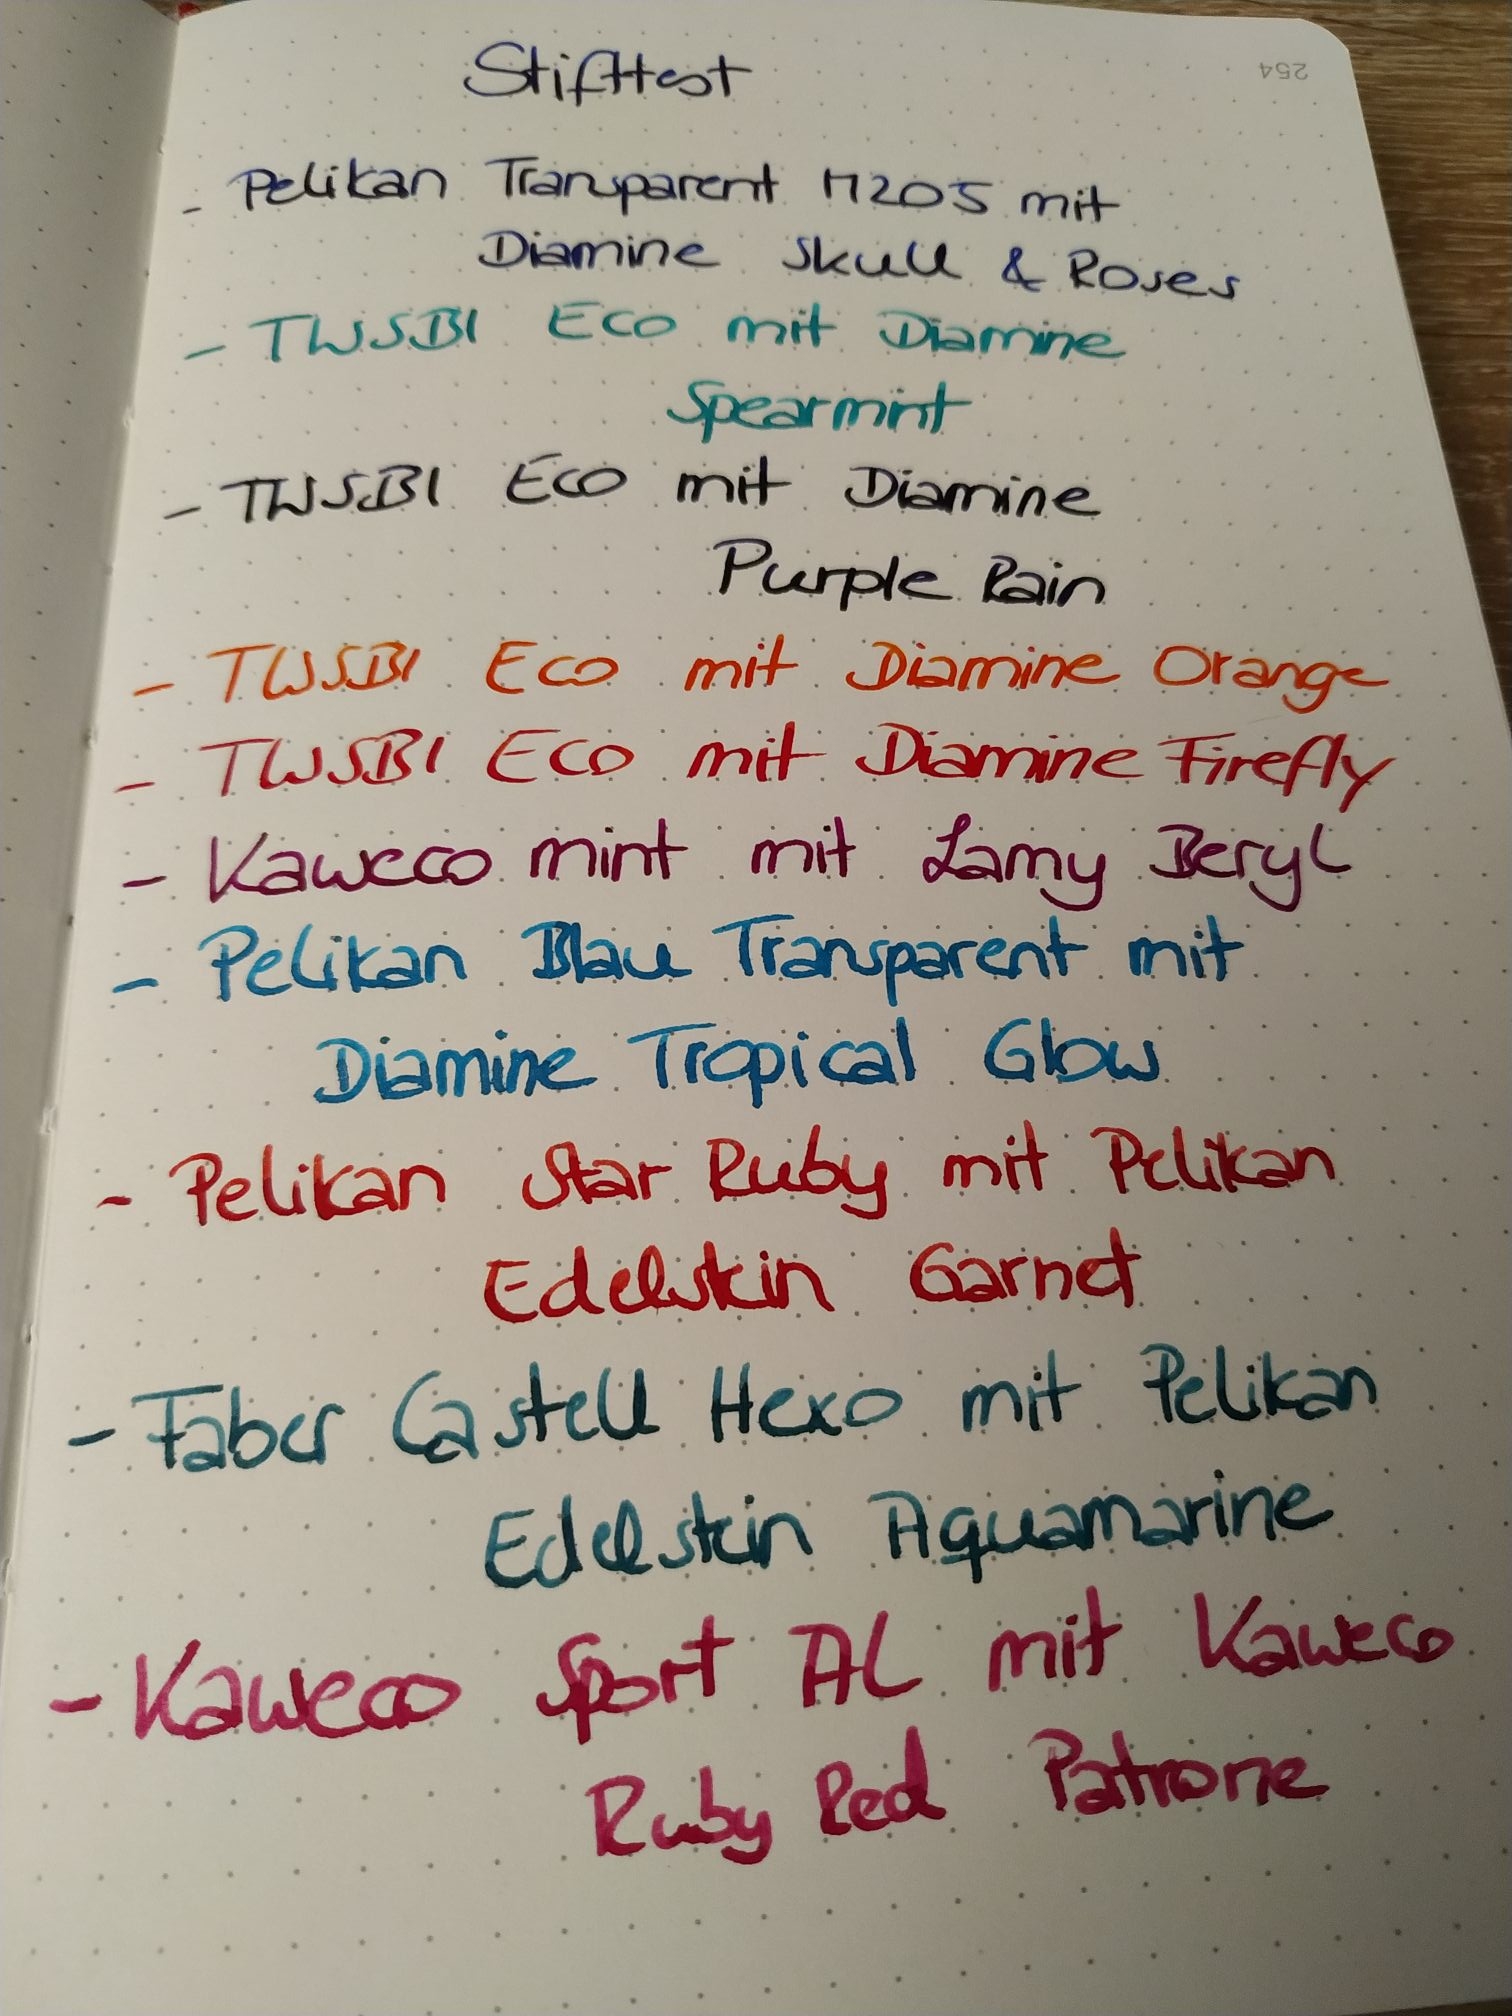 254
Stifttest
- Pelikan Transparent M205 mit
Diamine Skull & Roses
- TWSBI Eco mit Diamine
Spearmint
- TWSBI Eco mit Diamine
Purple Rain
- TWSBI Eco mit Diamine Orange
- TWSBI Eco mit Diamine Firefly
- Kaweco mint mit Lamy Beryl
- Pelikan Blau Transparent mit
Diamine Tropical Glow
- Pelikan Star Ruby mit Pelikan
Edelstein Garnet
- Faber Castell Hexo mit Pelikan
Edelstein Aquamarine
- Kaweco Sport AL mit Kaweco
Ruby Red Patrone